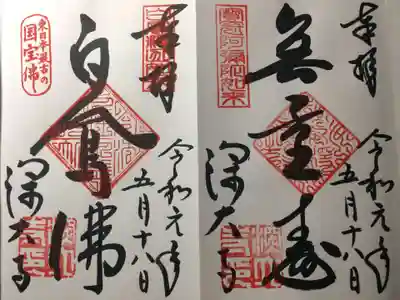 奉拝
無量寿
令和元年
五月十八日
深大寺
東日本最古の
国宝佛
奉拝
白鳳佛
令和元年
五月十八日
深大寺